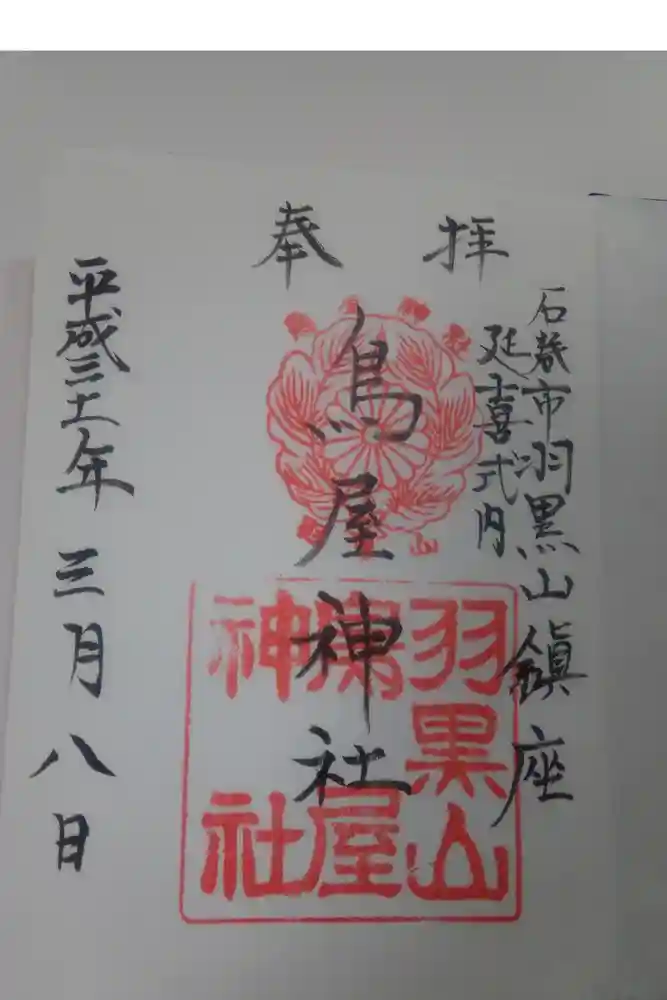 奉拝
石巻市羽黒山鎮座
延喜式内
鳥屋神社
平成三十一年三月八日
羽黒山
鳥屋
神社